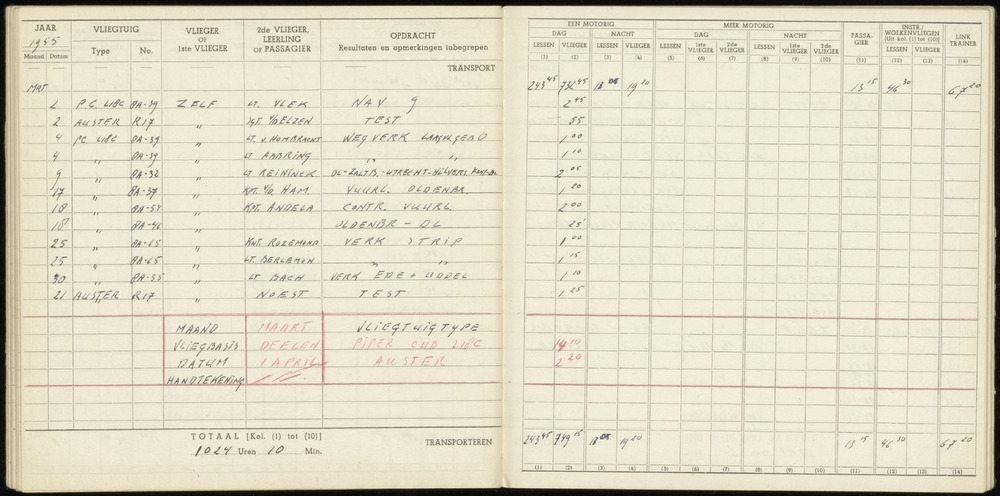 JAAR 1955 VLIEGTUIG VLIEGER OF 1ste VLIEGER 2de VLIEGER, LEERLING OF PASSAGIER OPDRACHT Resultaten en opmerkingen inbegrepen
Maand Datum Type No.
EEN MOTORIG MEER MOTORIG PASSA-GIER INSTR./WOLKENVLIEGEN (Uit kol. (1) tot (10)) LINK TRAINER
DAG NACHT DAG NACHT
LESSEN VLIEGER LESSEN VLIEGER LESSEN 1ste VLIEGER 2de VLIEGER LESSEN 1ste VLIEGER 2de VLIEGER LESSEN VLIEGER
(1) (2) (3) (4) (5) (6) (7) (8) (9) (10) (11) (12) (13) (14)
TRANSPORT 243 45 731 45 18 05 19 20 13 15 46 30 67 20
MRT
2 P.C. L18C 8A-39 ZELF LT. VLEK NAV 9 2 45
2 AUSTER R17 " TEST 55
4 PC L18C 8A-39 " LT. V. HOMBRACHT WEGVERK LAAGVLGEBD 1 00
4 " 8A-39 " LT ABBRING " " 1 10
9 " 8A-32 " LT REININCK 2 05
17 " 8A-37 " KPT. V/D HAM VUURL. OLDENBR. 1 20
18 " 8A-54 " KPT. ANDELA CONTR. VUURL 2 00
18 " 8A-46 " OLDENBR - DL 25
25 " 8A-65 " KNT. ROZEMAND VERK STRIP 1 00
25 " 8A-65 " LT. BERLEMON " " 1 15
30 " 8A-55 " LT BACH VERK EDE + UDDEL 1 10
21 AUSTER R17 " NOEST TEST 1 25
MAAND MAART VLIEGTUIGTYPE
VLIEGBASIS DEELEN PIPER CUB L18C 14 10
DATUM 1 APRIL AUSTER 2 20
HANDTEKENING
TOTAAL [Kol. (1) tot (10)] TRANSPORTEREN 243 45 749 15 18 05 19 20 13 15 46 30 67 20
1024 Uren 10 Min.
(1) (2) (3) (4) (5) (6) (7) (8) (9) (10) (11) (12) (13) (14)